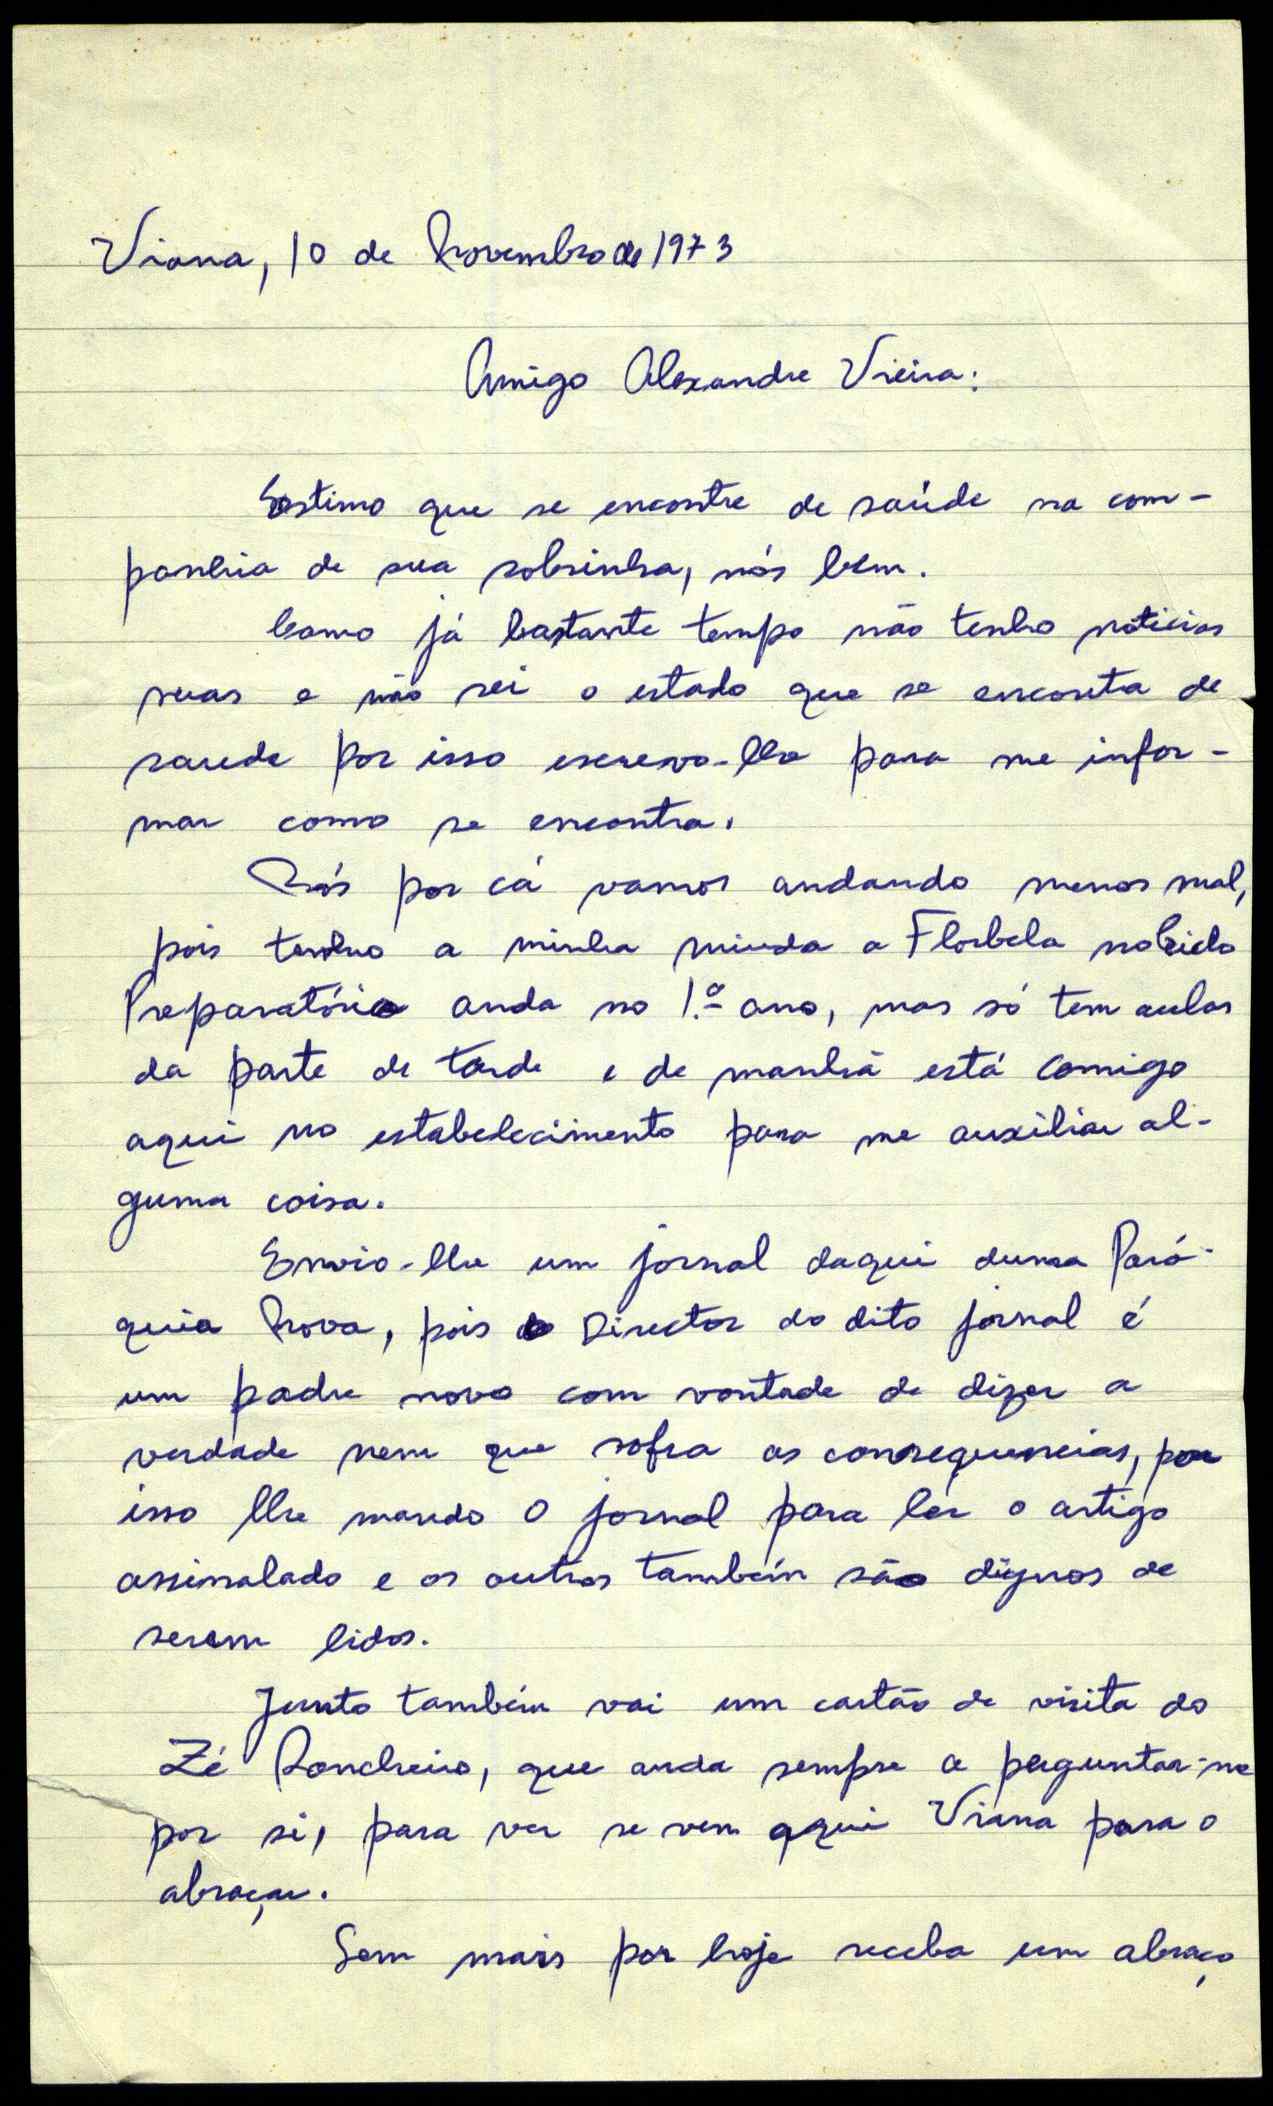 Viana, 10 de Novembro de 1973
Amigo Alexandre Vieira:
Estimo que se encontre de saúde na com-
panhia de sua sobrinha, nós bem.
Como já bastante tempo não tenho noticias
suas e não sei o estado que se encontra de
saude por isso escrevo-lhe para me infor-
mar como se encontra.
Nós por cá vamos andando menos mal,
pois tenho a minha miuda a Florbela no Ciclo
Preparatório anda no 1.º ano, mas só tem aulas
da parte de tarde e de manhã está comigo
aqui no estabelecimento para me auxiliar al-
guma coisa.
Envio-lhe um jornal daqui duma Paró-
quia Nova, pois o Director do dito jornal é
um padre novo com vontade de dizer a
verdade nem que sofra as consequencias, por
isso lhe mando o jornal para ler o artigo
assinalado e os outros também são dignos de
serem lidos.
Junto também vai um cartão de visita do
Zé Roncheiro, que anda sempre a perguntar-me
por si, para ver se vem aqui Viana para o
abraçar.
Sem mais por hoje receba um abraço